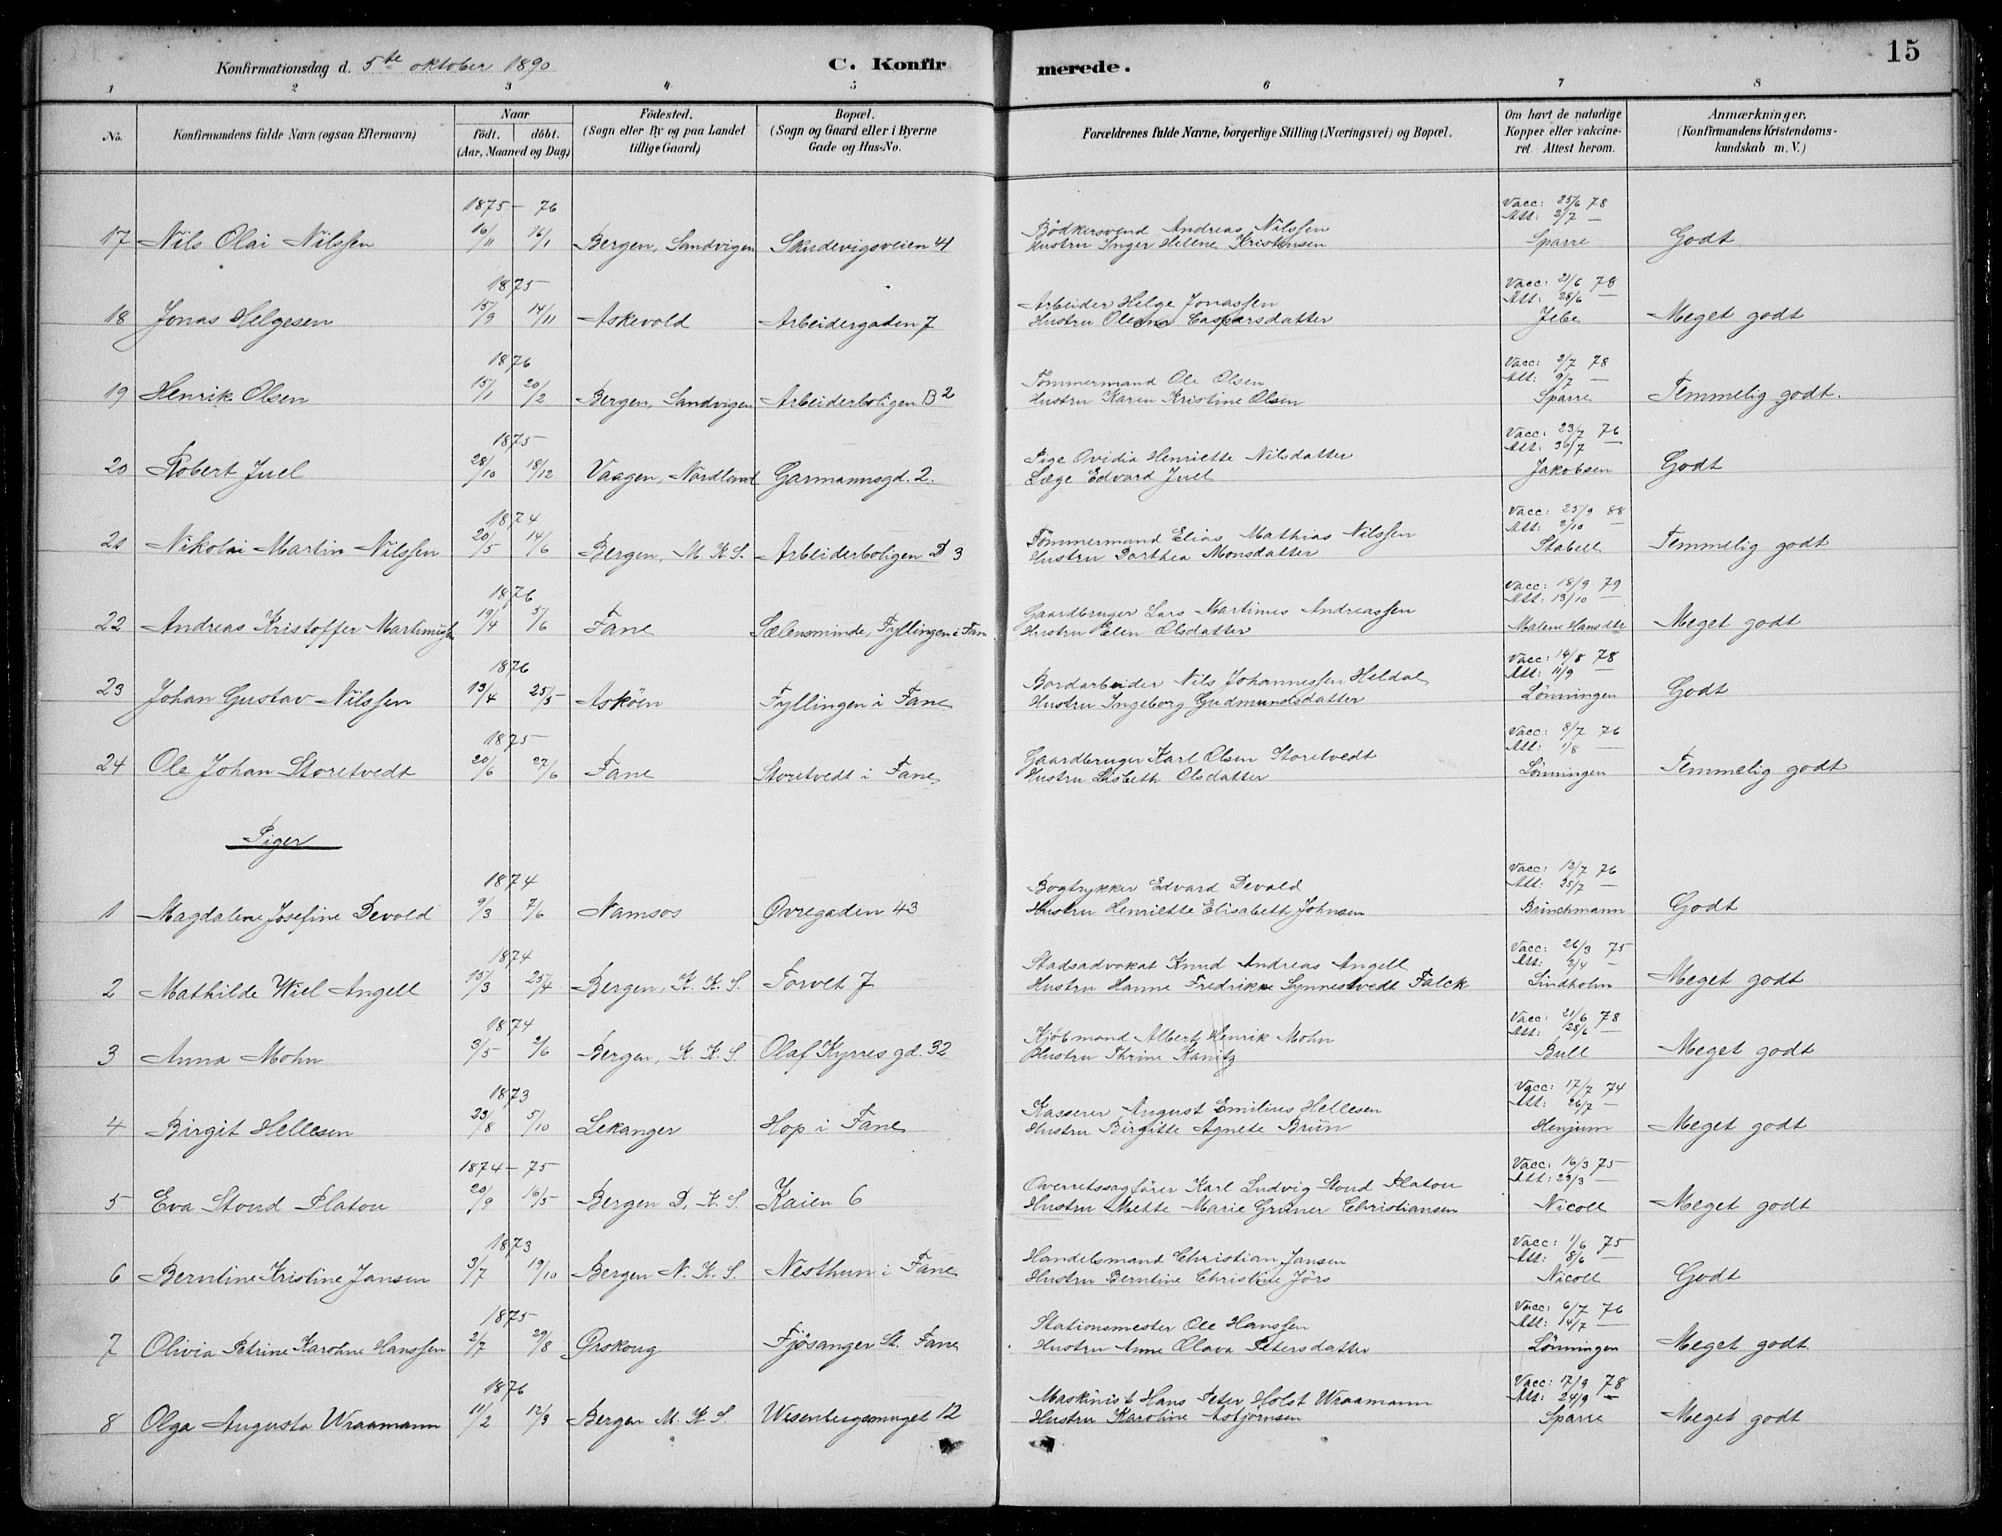 Konfirmationsdag d. 5te oktober 1890
C. Konfirmerede.
15
1 2 3 4 5 6 7 8
No.
Konfirmandens fulde Navn (ogsaa Efternavn)
Naar født. døbt. (Aar, Maaned og Dag)
Fødested. (Sogn eller By og paa Landet tillige Gaard)
Bopæl. (Sogn og Gaard eller i Byerne Gade og Hus-No.
Forældrenes fulde Navne, borgerlige Stilling (Næringsvei) og Bopæl.
Om havt de naturlige Kopper eller vakcineret. Attest herom.
Anmærkninger, (Konfirmandens Kristendomskundskab m. V.)
1875 - 76 Vacc: 25/6 78
Bødkersvend Andreas Nilssen Att: 2/7 —
17 Nils Olai Nilssen 16/11 16/1 Bergen, Sandvigen Skudevigsveien 4 Hustru Inger Helene Kristensen Sparre Godt
1875 Vacc: 21/6 78
Arbeider Helge Jonassen Att: 28/6 —
18 Jonas Helgesen 15/9 14/11 Askevold Arbeidergaden 7 Hustru Olena Caspersdatter Jebe Meget godt
1876 Vacc: 2/7 78
Tømmermand Ole Olsen Att: 9/7 —
19 Henrik Olsen 15/1 20/2 Bergen, Sandvigen Arbeiderboligen B 2 Hustru Karen Kristine Olsen Sparre Temmelig godt.
1875 Vacc: 23/7 76
Pige Ovidia Henriette Nilsdatter Att: 30/7 —
20 Robert Juel 28/10 18/12 Vaagen, Nordland Garmannsgd. 2. Læge Edvard Juel Jakobsen Godt
1874 Vacc: 25/9 88
Tømmermand Elias Mathias Nilssen Att: 2/10 —
21 Nikolai Martin Nilssen 20/5 14/6 Bergen, M. K. S. Arbeiderboligen D 3 Hustru Dorthea Monsdatter Stabell Temmelig godt
1876 Vacc: 18/9 79
Gaardbruger Lars Martinus Andreassen Att: 13/10 —
22 Andreas Kristoffer Martinussen 19/4 5/6 Fane Sælensminde, Fyllingen i Fane Hustru Elen Olsdatter Malene Hansdtr Meget godt
1876 Vacc: 14/8 78
Bordarbeider Nils Johannessen Heldal Att: 11/9
23 Johan Gustav Nilssen 13/4 25/5 Askøen Fyllingen i Fane Hustru Ingeborg Gudmundsdatter Lønningen Godt
1875 Vacc: 8/7 76
Gaardbruger Karl Olsen Storetvedt Att: 1/8 —
24 Ole Johan Storetvedt 20/6 27/6 Fane Storetvedt i Fane Hustru Lisbeth Olsdatter Lønningen Temmelig godt
Piger
1874 Vacc: 12/7 76
Bogtrykker Edvard Devold Att: 25/7 —
1 Magdalene Josefine Devold 9/3 7/6 Namsos Øvregaden 43 Hustru Henriette Elisabeth Johnsen Brinchmann Godt
1874 Vacc: 26/3 75
Stadsadvokat Knud Andreas Angell Att: 2/4 -
2 Mathilde Wiel Angell 15/3 25/4 Bergen, K. K. S. Torvet 7 Hustru Hanne Fredrikke Synnestvedt Falck Lindholm Meget godt
1874 Vacc: 21/6 78
Kjøbmand Albert Henrik Mohn Att: 28/6 —
3 Anna Mohn 3/5 2/6 Bergen, K. K. S. Olaf Kyrres gd. 32 Hustru Thrine Kanitz Bull Meget godt
1873 Vacc: 17/7 74
Kasserer August Emilius Hellesen Att: 26/7 —
4 Birgit Hellesen 23/8 5/10 Lekanger Hop i Fane Hustru Birgitte Agnete Brün Henjum Meget godt
1874 - 75 Vacc: 16/3 75
Overretssagfører Karl Ludvig Stoud Platou Att: 23/3 —
5 Eva Stoud Platou 20/9 16/5 Bergen D. K. S. Kaien 6 Hustru Mette Marie Grüner Christiansen Nicoll Meget godt
1873 Vacc: 1/6 75
Handelsmand Christian Jansen Att: 8/6 —
6 Berntine Kristine Jansen 3/7 19/10 Bergen N. K. S. Nesthun i Fane Hustru Berntine Christine Jørs Nicoll Godt
1875 Vacc: 6/7 76
Stationsmester Ole Hanssen Att: 14/7 —
7 Olivia Petrine Karoline Hanssen 2/7 29/8 Ørskoug Fjøsanger St. Fane Hustru Anne Olava Petersdatter Lønningen Meget godt
1876 Vacc: 17/9 78
Maskinist Hans Peter Holst Wraamann Att: 24/9 —
8 Olga Augusta Wraamann 11/2 12/3 Bergen M. K. S. Wesenbergsmuget 12 Hustru Karoline Asbjørnsen Sparre Meget godt